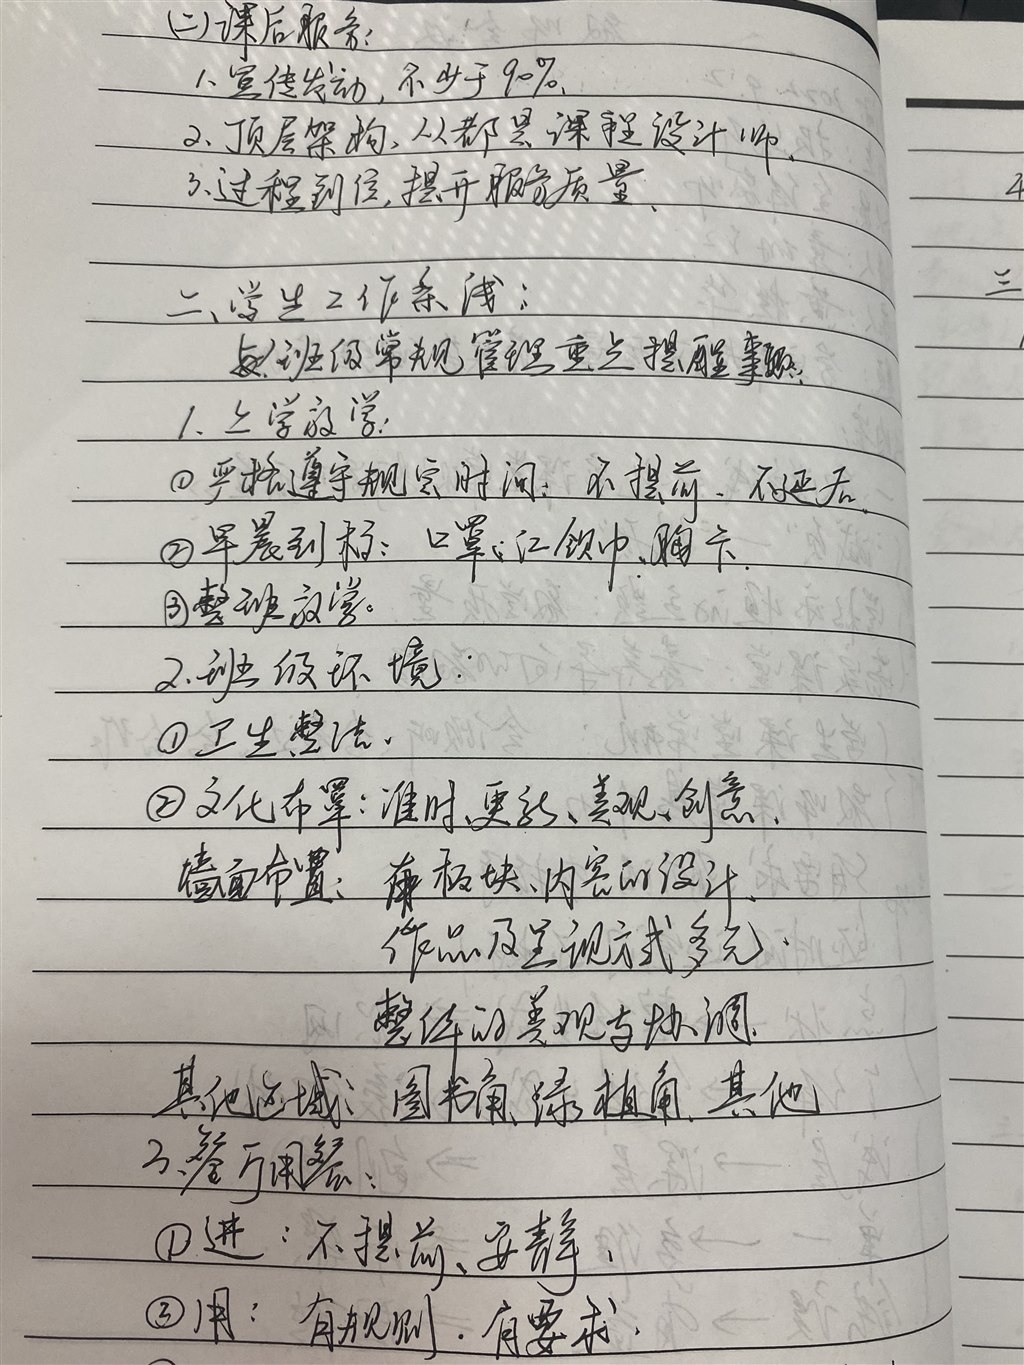 (二)课后服务:
1、宣传发动,不少于90%、
2、顶层架构、人人都是课程设计师、
3、过程到位,提升服务质量、
二、学生工作条线:
班级常规管理重点提醒事项:
1、上学放学:
①严格遵守规定时间:不提前、不延后、
②早晨到校:口罩、红领巾、胸卡、
③整班放学。
2、班级环境:
①卫生整洁、
②文化布置:准时、更新、美观、创意、
墙面布置:板块、内容的设计、
作品及呈现方式多元、
整体的美观与协调、
其他区域:图书角、绿植角、其他
3、餐厅用餐:
①进:不提前、安静、
②用:有规则、有要求、
三